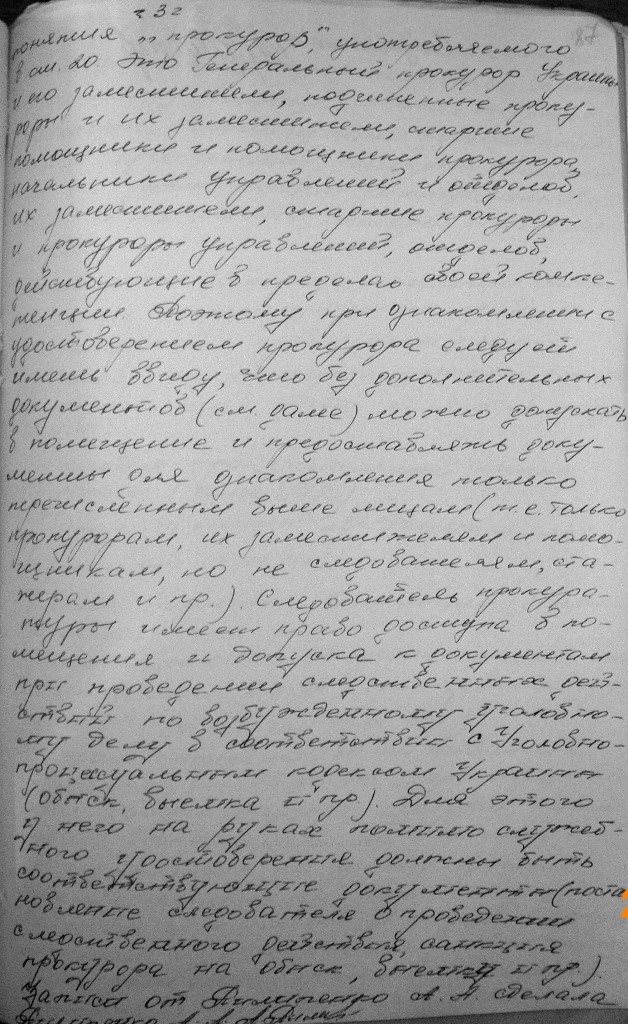 3 г
87
понятия „прокурор", употребляемого
в ст. 20. Это Генеральный прокурор Украины
и его заместители, подчиненные проку-
роры и их заместители, старшие
помощники и помощники прокурора,
начальники управлений и отделов,
их заместители, старшие прокуроры
и прокуроры управлений, отделов,
действующие в пределах своей компе-
тенции. Поэтому при ознакомлении с
удостоверением прокурора следует
иметь ввиду, что без дополнительных
документов (см. далее) можно допускать
в помещение и предоставлять доку-
менты для ознакомления только
перечисленным выше лицам (т.е. только
прокурорам, их заместителям и помо-
щникам, но не следователям, ста-
жерам и пр.). Следователь прокура-
туры имеет право доступа в по-
мещения и допуска к документам
при проведении следственных дей-
ствий по возбужденному уголовно-
му делу в соответствии с Уголовно-
процессуальным кодексом Украины
(обыск, выемка и пр.). Для этого
у него на руках помимо служеб-
ного удостоверения должны быть
соответствующие документы (поста
новление следователя о проведении
следственного действия, санкция
прокурора на обыск, выемку и пр.).
Записи от А. А. сделала